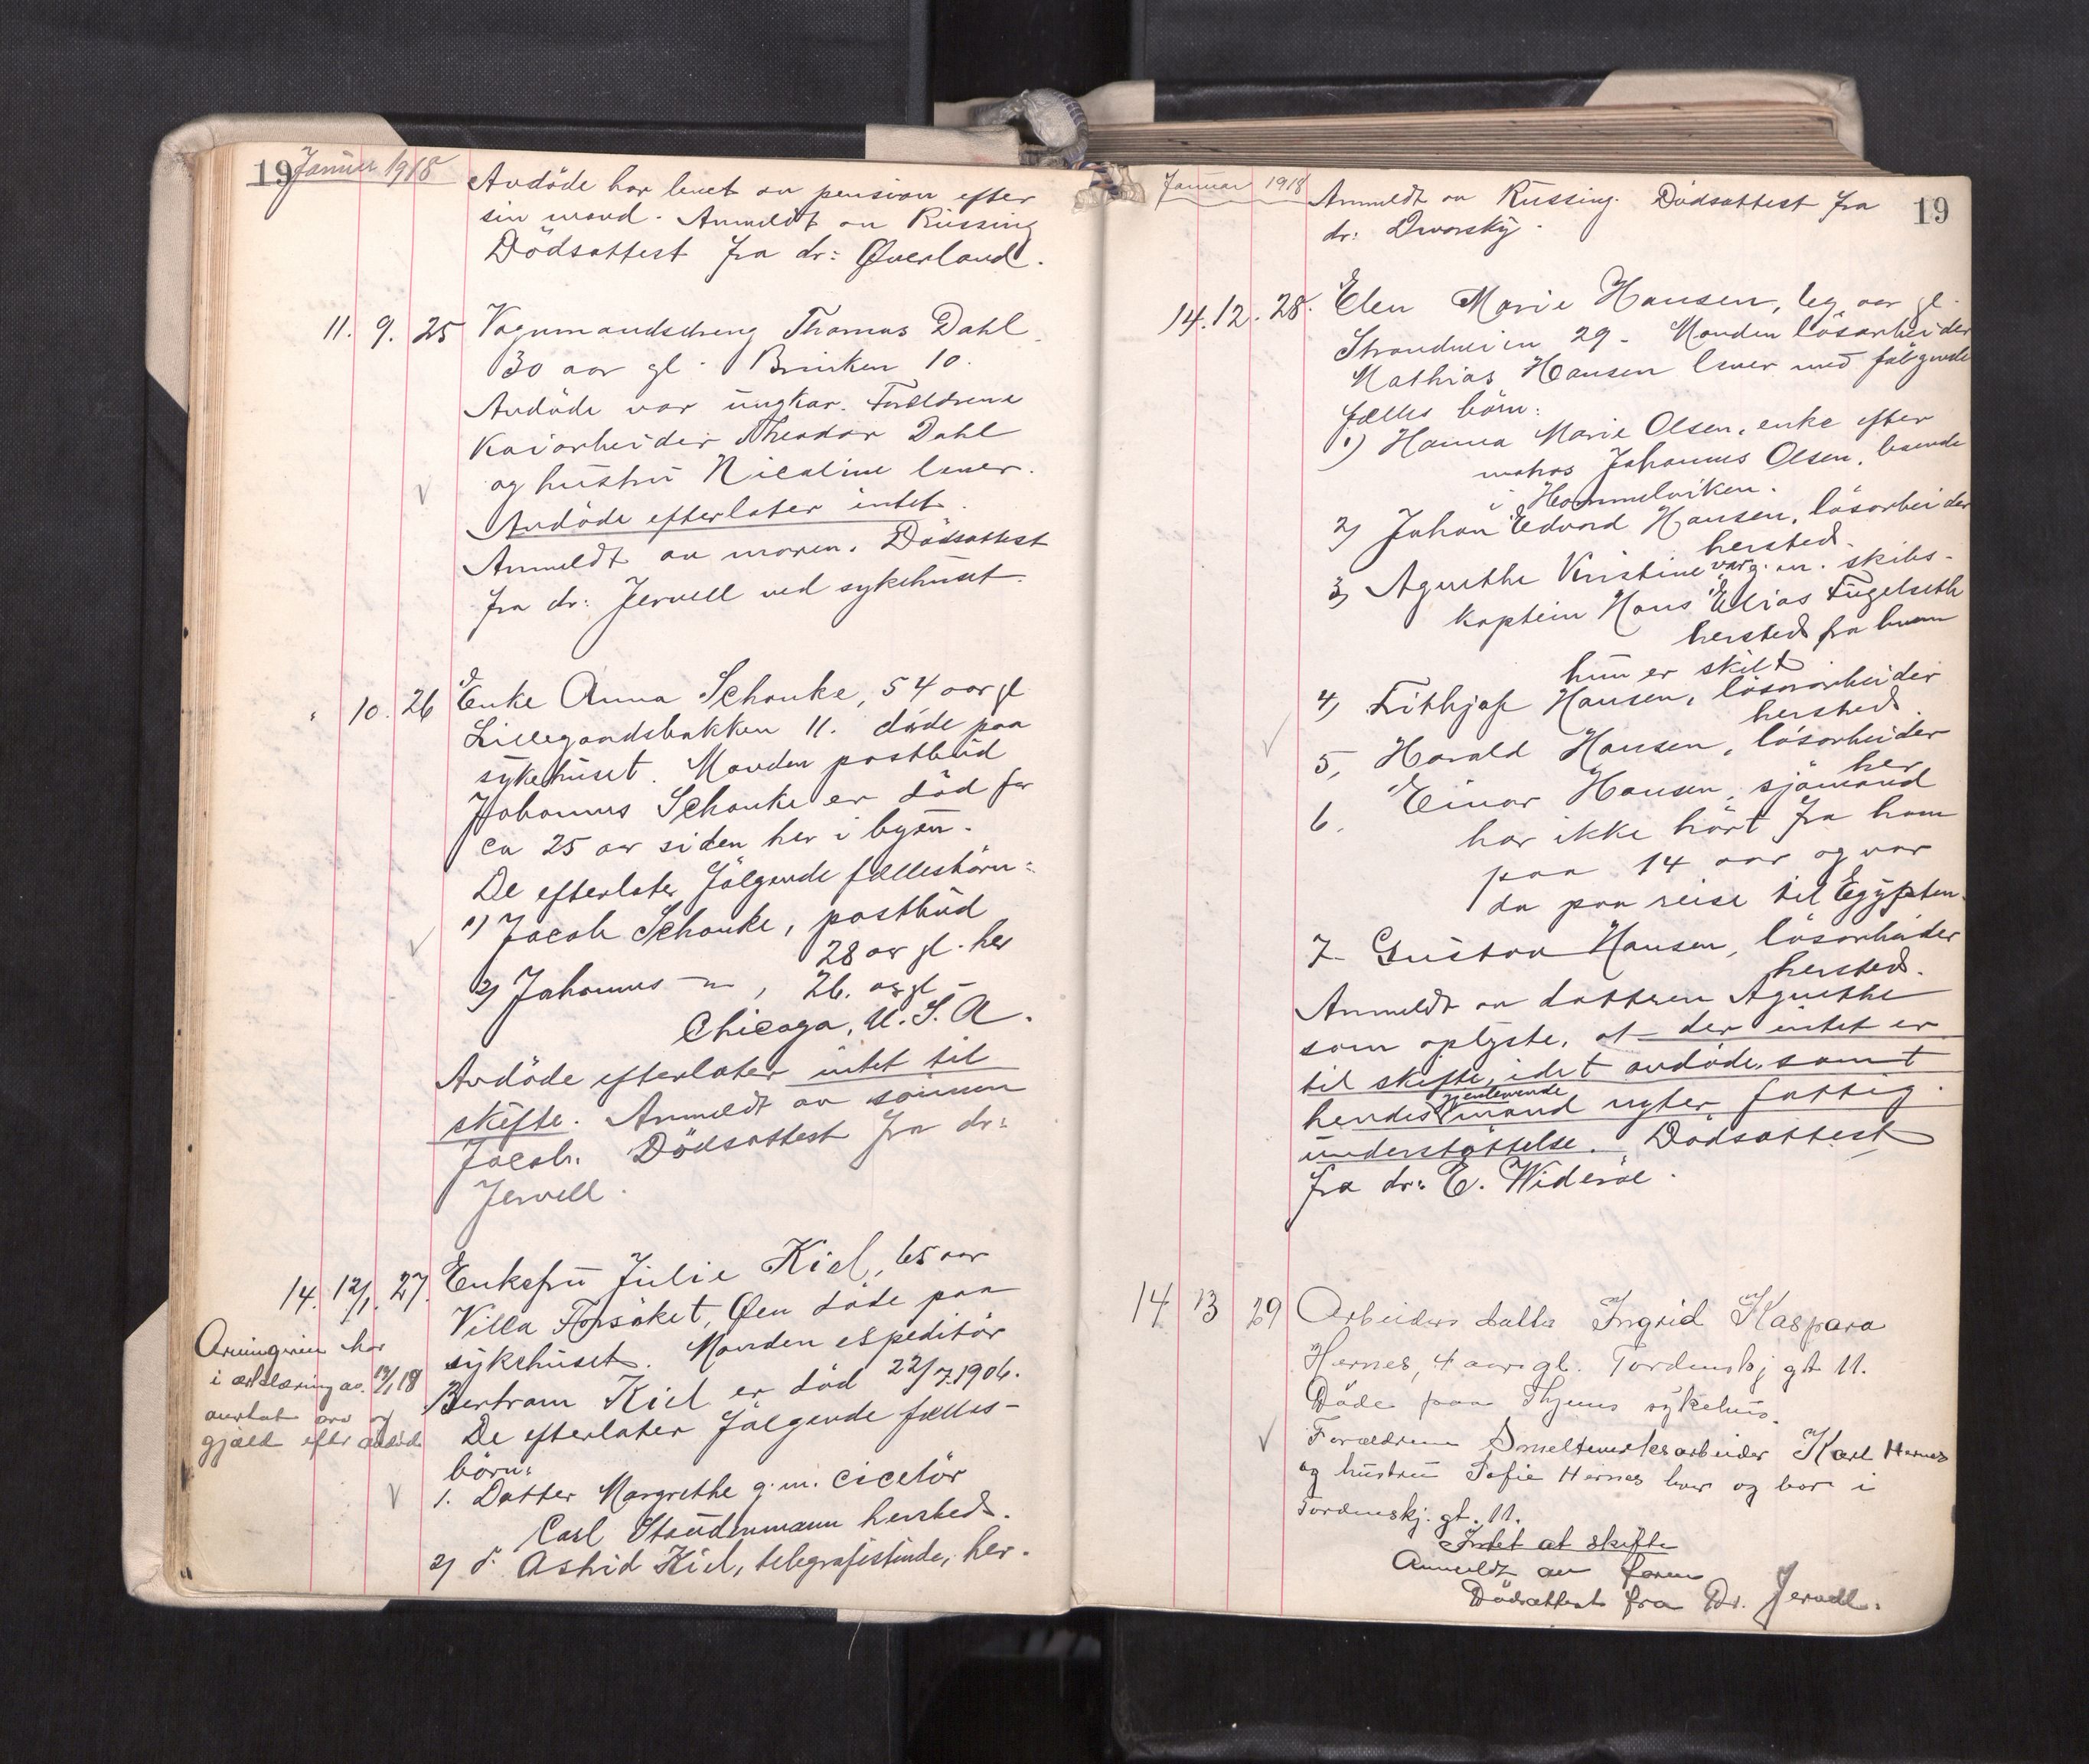 19 Januar 1918
Avdöde har levet av pension efter
sin mand. Anmeldt av Riissing
Dödsattest fra dr: Øverland.
11. 9. 25 Vognmandsdreng Thomas Dahl
30 aar gl. Brinken 10.
Avdöde var ungkar. Forældrene
Kaiarbeider Theodor Dahl
og hustru Nicoline lever.
Avdöde efterlater intet.
Anmeldt av moren. Dödsattest
fra dr: Jervell ved sykehuset.
" 10. 26 Enke Anna Schanke, 54 aar gl
Lillegaardsbakken 11. döde paa
sykehuset. Manden postbud
Johannes Schanke er död for
ca 25 aar siden her i byen.
De efterlater fölgende fællesbörn:
1) Jacob Schanke, postbud
28 aar gl. her
2) Johannes —"—, 26. aar gl —
Chicago, U.S.A.
Avdöde efterlater intet til
skifte. Anmeldt av sönnen
Jacob. Dödsattest fra dr:
Jervell.
14. 12/1. 27. Enkefru Julie Kiel, 65 aar
Villa Forsöket, Øen döde paa
sykehuset. Manden expeditör
Bertram Kiel er död 22/7.1906.
De efterlater fölgende fælles-
börn:
1. Datter Margrethe g.m. ciselör
Carl Staudenmann hersteds.
2) d. Astrid Kiel, telegrafistinde, her.
Arvingerne har
i erklæring av 14/1 18
overtat arv og
gjæld efter avdöde
Januar 1918
19
Anmeldt av Riissing. Dödsattest fra
dr: Dworsky.
14. 12. 28. Elen Marie Hansen, 69 aar gl.
Strandveien 29. Manden lösarbeider
Mathias Hansen lever med fölgende
fælles börn:
1) Hanna Marie Olsen, enke efter
matros Johannes Olsen, boende
i Hommelviken.
2) Johan Edvard Hansen, lösarbeider
hersted.
3) Agnethe Kristine var g.m. skibs-
kaptein Hans Elias Fugelseth
hersteds fra hvem
hun er skilt
4) Fithjof Hansen, lösarbeider
hersteds.
5, Harald Hansen, lösarbeider
her
6. Einar Hansen, sjömand
har ikke hört fra ham
paa 14 aar og var
da paa reise til Egypten.
7. Gustav Hansen, lösarbeider
hersteds.
Anmeldt av datteren Agnethe
som oplyste, at der intet er
til skifte, idet avdöde, samt
hendes gjenlevende mand nyter fattig
understöttelse. Dödsattest
fra dr: E. Wideröe.
14 13 29 Arbeiders datter Ingrid Kaspara
Hernes, 4 aar gl. Tordenskj gt 11.
Döde paa Thjems sykehus.
Forældrene Smelteverksarbeider Karl Hernes
og hustru Sofie Hernes lever og bor i
Tordenskj. gt. 11.
Intet at skifte
Anmeldt av faren
Dödsattest fra Dr. Jervell.